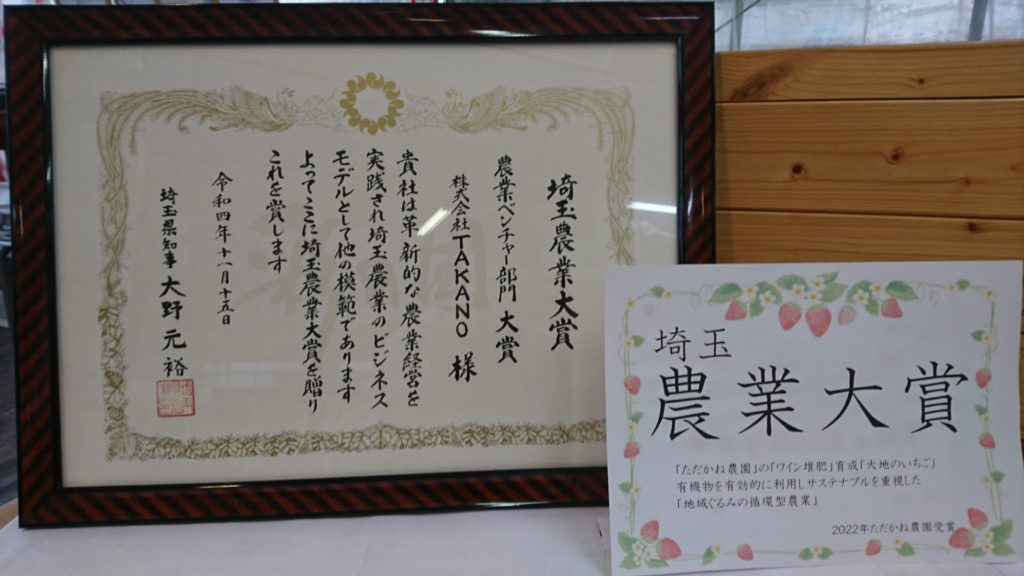 埼玉農業大賞
農業ベンチャー部門 大賞
株式会社TAKANO 様
貴社は革新的な農業経営を
実践され埼玉農業のビジネス
モデルとして他の模範であります
よってここに埼玉農業大賞を贈り
これを賞します
令和四年十一月十五日
埼玉県知事 大野元裕
埼玉
農業大賞
「ただかね農園」の「ワイン堆肥」育成「大地のいちご」
有機物を有効的に利用しサステナブルを重視した
「地域ぐるみの循環型農業」
2022年ただかね農園受賞